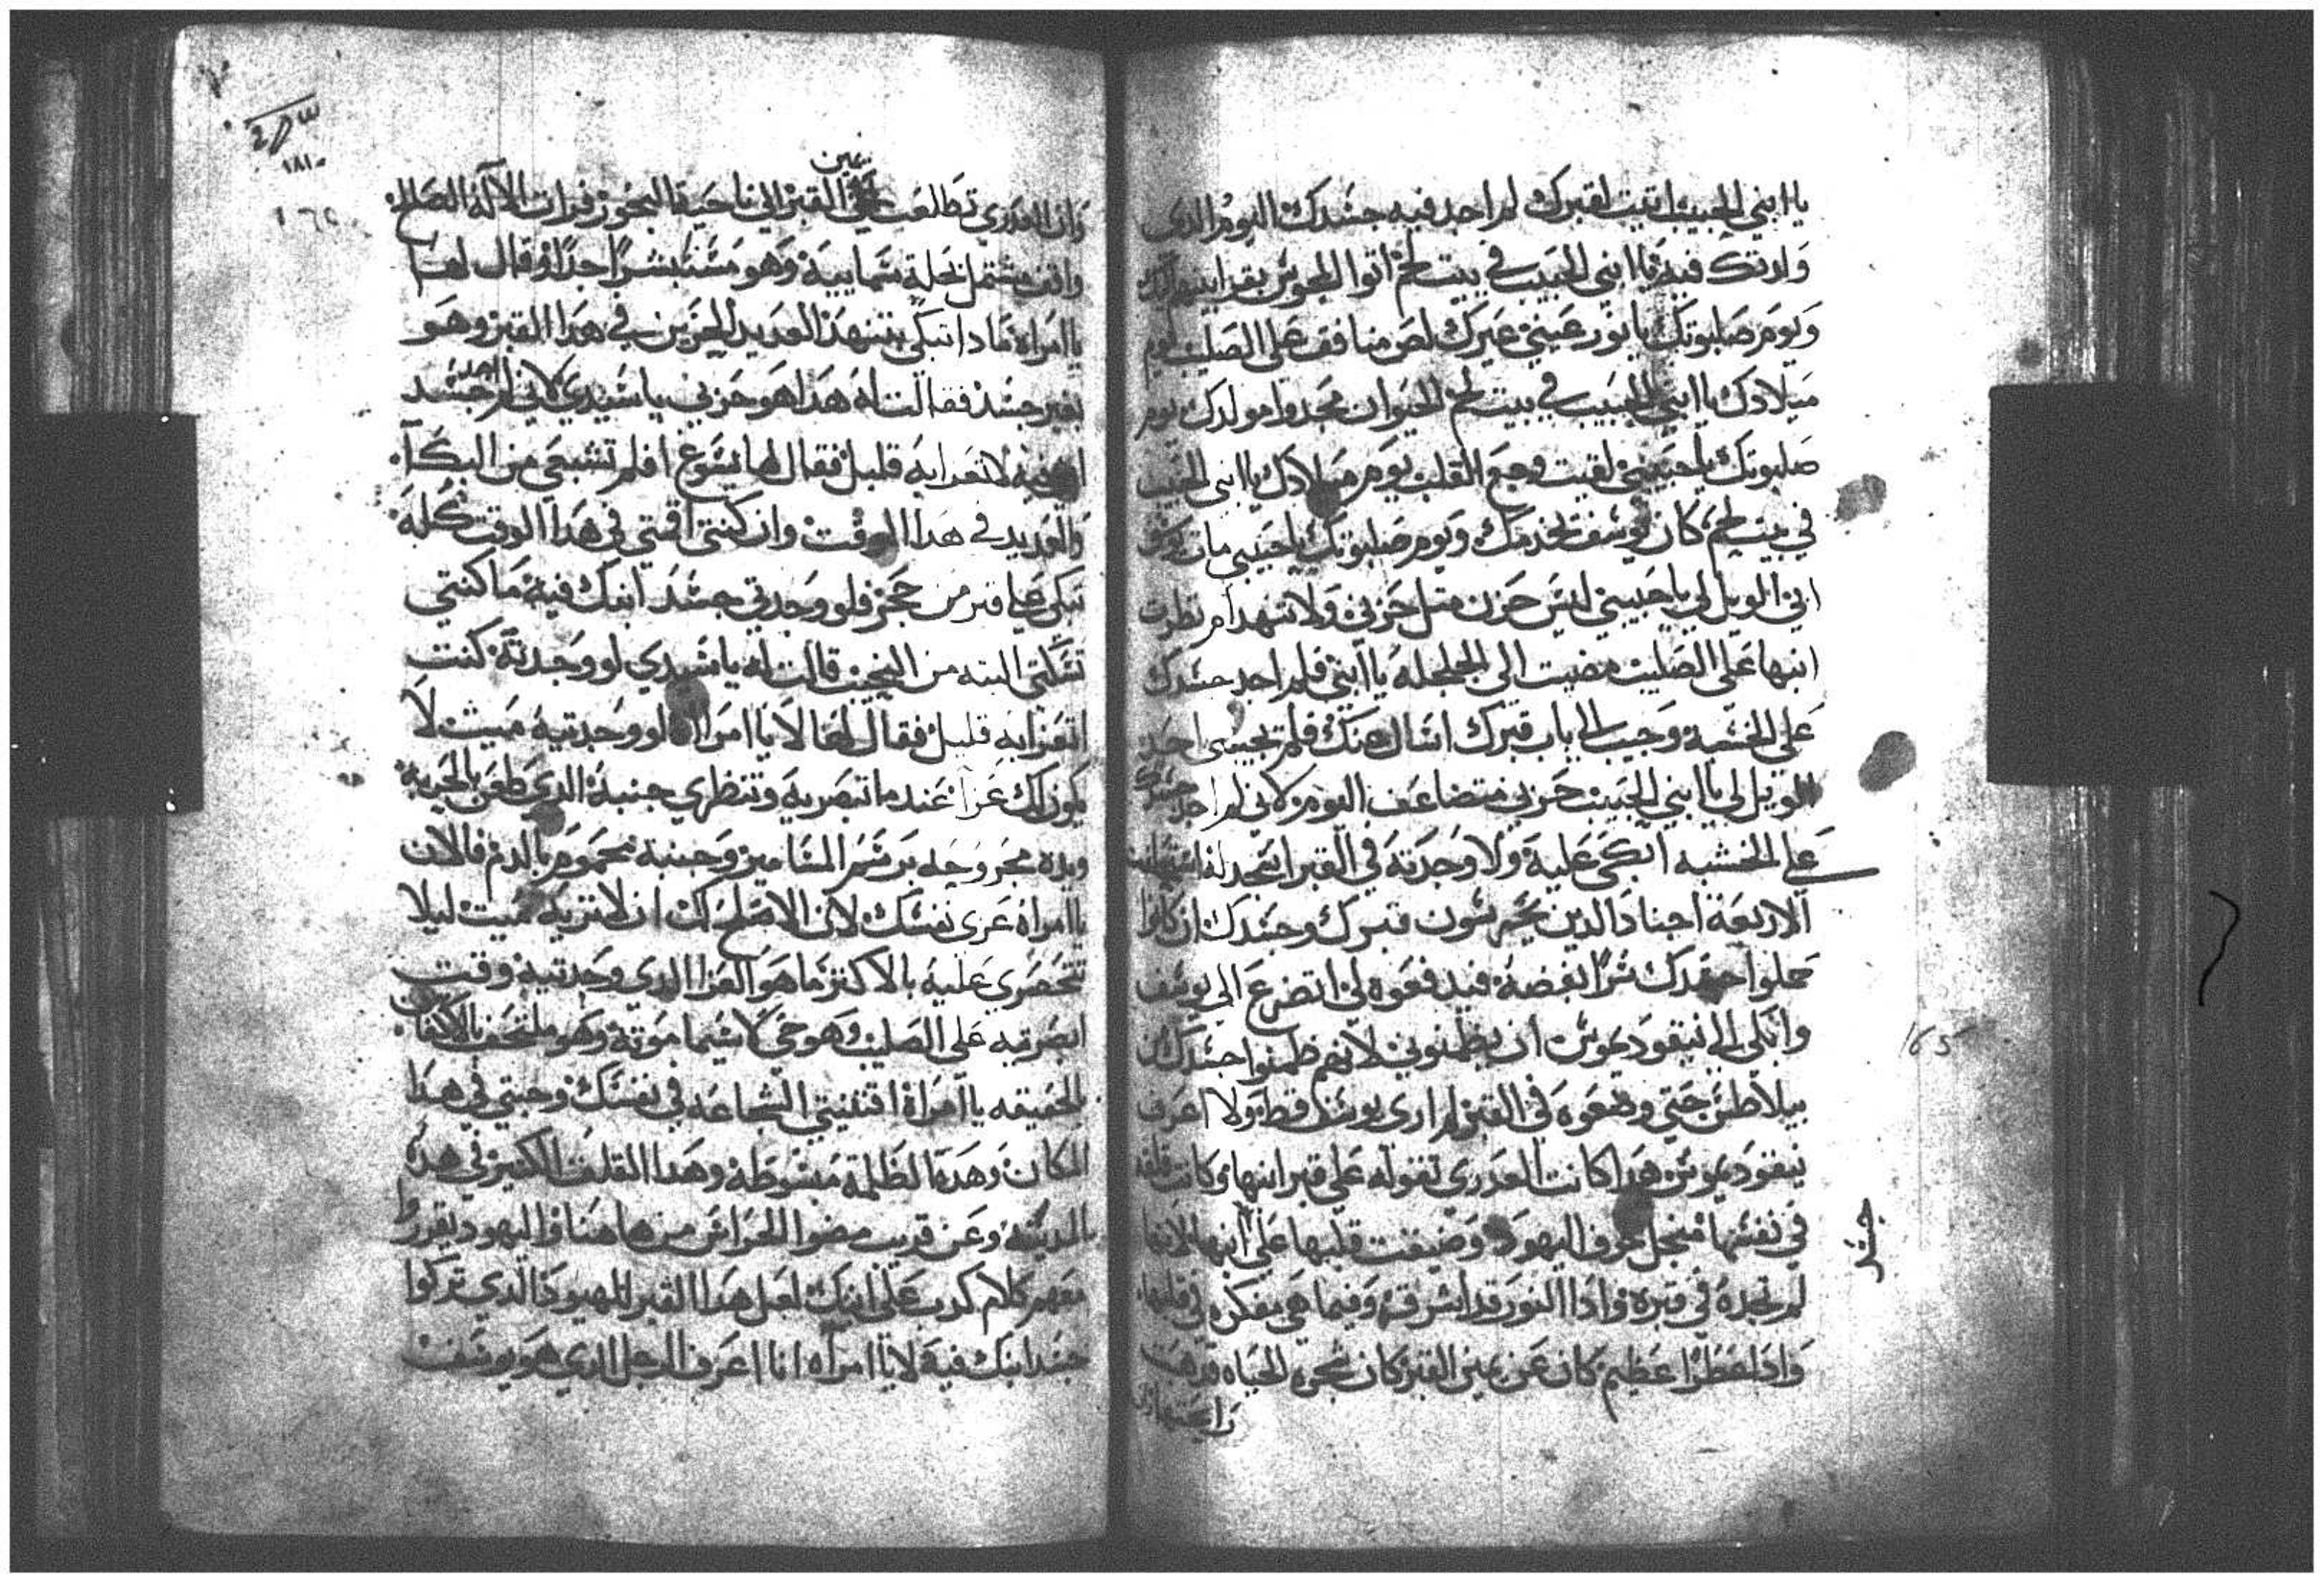 يا ابني الحبيب اتيت لقبرك لم اجد فيه جسدك اليوم الدي
ولدتك فيه يا ابني الحبيب في بيت لحم اتوا المجوس
ويوم صلبوتك يا نور عيني عيرك لص منافق على الصليب يوم
ميلادك يا ابني الحبيب في بيت لحم الحيوان مجدوا مولدك يوم
صلبوتك يا حبيبي لقيت وجع القلب يوم ميلادك يا ابني الحبيب
في بيت لحم كان يوسف يخدمك ويوم صلبوتك يا حبيبي مات يوسف
ابي الويل لي يا حبيبي ليس حزن متل حزني ولا تنهد ام نظرت
ابنها على الصليب مضيت الى الجلجله يا ابني فلم اجد جسدك
على الخشبة وجيت الى باب قبرك اسال عنك فلم يجيبني احد
الويل لي يا ابني الحبيب حزني متضاعف اليوم لاني لم اجد جسدك
على الخشبه ابكي علية ولا وجدته في القبر اسجد له
الاربعة اجناد الدين يحرسون قبرك وجسدك ان كانوا
حملوا جسدك سرا بفضة فيدفعوه لي اتضرع الي يوسف
وابكي الي نيقوديموس ان يظلموني لانهم طلبوا جسدك من
بيلاطس حتي وضعوه في القبر لم ارى يوسف قط ولا اعرف
نيقوديموس هدا كانت العدرى تقوله على قبر ابنها وكانت قلقه
في نفسها منجل خوف اليهود وضيقت قلبها على ابنها لانها
لم تجده في قبره وادا النور قد اشرق وفيما هي مفكره في قلبها
وادا عطرا عظيم كان عن يمين القبر كان شجرة الحياه قد هب
رايحتها
جسد
165
٣
١٨١٠
١٦٤
يمين
وان العدرى تطالعت القبر الي ناحية البخور فرات الاله الصالح
واقف مشتمل بحلة سماييه وهو مستبشر جدا وقال لها
يا امراه مادا تبكي بتنهد العديد الحزين في هدا القبر وهو
بغير جسد فقالت له هدا هو حزني يا سيدي لاني لم اجد جسد
ابني لاتعزا به قليل فقال لها يسوع افلم تشبعي من البكا
والعديد في هدا الوقت وان كنتي اقمتي في هدا الوقت كله
تبكي على قبر من حجر فلو وجدتي جسد ابنك فيه ما كنتي
تسكتي البته من النحيب قالت له يا سيدي لو وجدته كنت
اتعزا به قليل فقال لها لا يا امراه لو وجدتيه ميت لا
يكون لك عزا عندما تبصريه وتنظري جنبه الدي طعن بالحربة
ويده مجروحه برسم المسامير وجنبه محموم بالدم فالان
يا امراة عزي نفسك لان الاصلح لك ان لا تريه ميت ليلا
تتحسري عليه بالاكتر ما هو العزا الدي وجدتيه وقت
ابصرتيه على الصليب وهو حي لا سيما موته وهو ملتحف بالاكفان
بالحقيقه يا امراة اقتنيتي الشجاعه في نفسك وجيتي في هدا
المكان وهده الظلمة مبسوطه وهدا القلق الكتير في هده
المدينه وعن قريب مضوا الحراس من هاهنا واليهود يقرروا
معهم كلام كدب على ابنك لعل هدا القبر لليهود الدي تركوا
جسد ابنك فيه لا يا امراه انا اعرف الرجل الدي هو يوسف